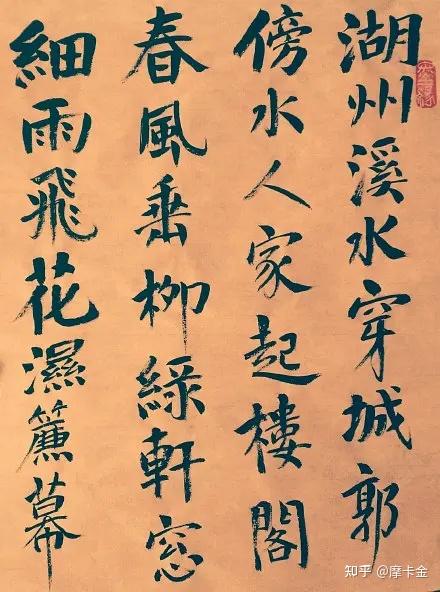 湖州溪水穿城郭
傍水人家起樓閣
春風垂柳綠軒窓
細雨飛花濕簾幕
知乎 @摩卡金